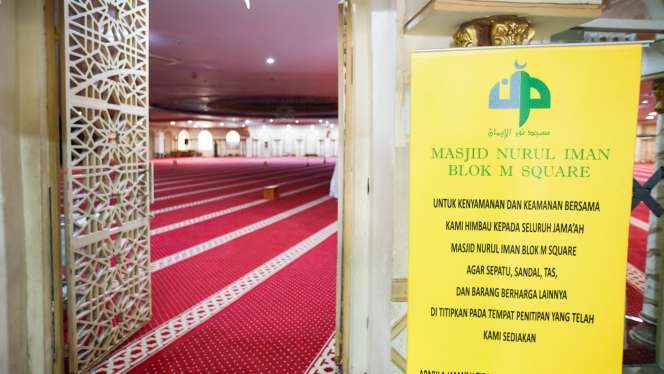 مسجد نور الإيمان
MASJID NURUL IMAN
BLOK M SQUARE
UNTUK KENYAMANAN DAN KEAMANAN BERSAMA
KAMI HIMBAU KEPADA SELURUH JAMA'AH
MASJID NURUL IMAN BLOK M SQUARE
AGAR SEPATU, SANDAL, TAS,
DAN BARANG BERHARGA LAINNYA
DI TITIPKAN PADA TEMPAT PENITIPAN YANG TELAH
KAMI SEDIAKAN